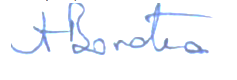 A Borotra